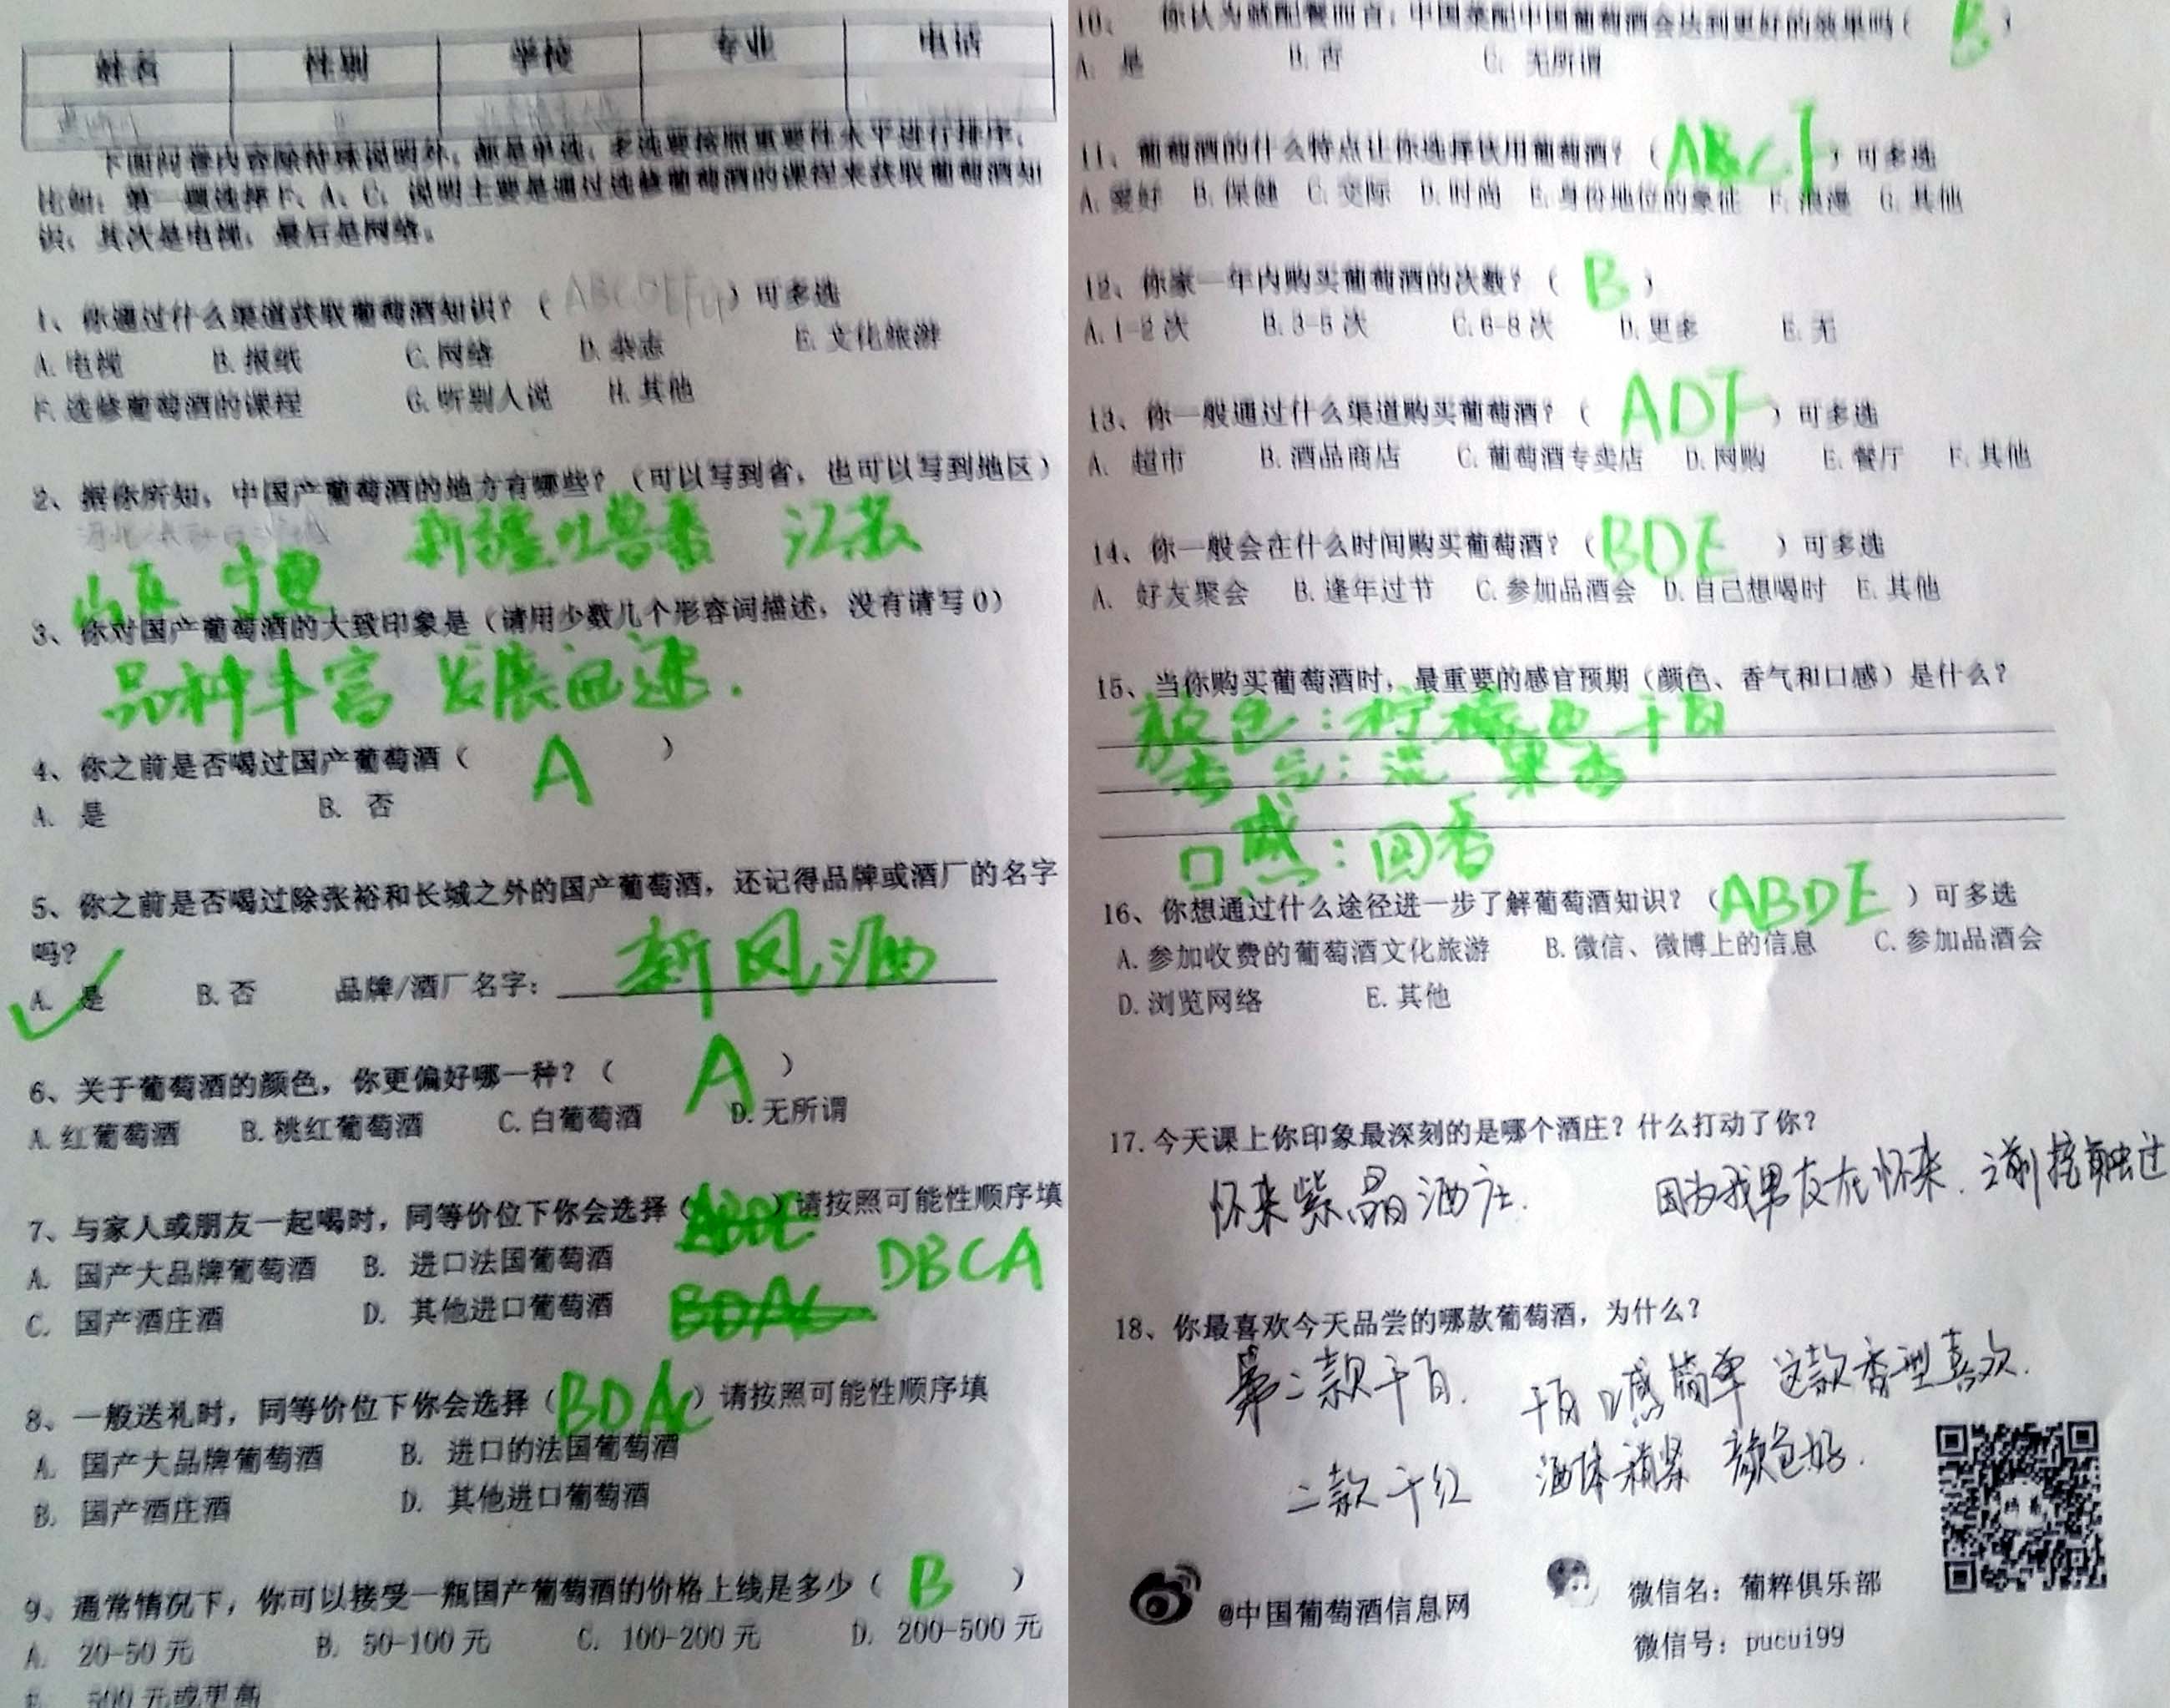 姓名 性别 学校 专业 电话
下面问卷内容除特殊说明外，都是单选，多选要按照重要性水平进行排序，
比如：第一题选择F、A、C，说明主要是通过选修葡萄酒的课程来获取葡萄酒知
识，其次是电视，最后是网络。
1、你通过什么渠道获取葡萄酒知识？（ABCDEFG）可多选
A. 电视 B. 报纸 C. 网络 D. 杂志 E. 文化旅游
F. 选修葡萄酒的课程 G. 听别人说 H. 其他
2、据你所知，中国产葡萄酒的地方有哪些？（可以写到省，也可以写到地区）
新疆吐鲁番 江苏
3、你对国产葡萄酒的大致印象是（请用少数几个形容词描述，没有请写0）
品种丰富 发展迅速.
4、你之前是否喝过国产葡萄酒（ A ）
A. 是 B. 否
5、你之前是否喝过除张裕和长城之外的国产葡萄酒，还记得品牌或酒厂的名字
吗？
A. 是 B. 否 品牌/酒厂名字： 新凤酒
6、关于葡萄酒的颜色，你更偏好哪一种？（ A ）
A. 红葡萄酒 B. 桃红葡萄酒 C. 白葡萄酒 D. 无所谓
7、与家人或朋友一起喝时，同等价位下你会选择（ABDE）请按照可能性顺序填
A. 国产大品牌葡萄酒 B. 进口法国葡萄酒 DBCA
C. 国产酒庄酒 D. 其他进口葡萄酒 BDAC
8、一般送礼时，同等价位下你会选择（BDAC）请按照可能性顺序填
A. 国产大品牌葡萄酒 B. 进口的法国葡萄酒
B. 国产酒庄酒 D. 其他进口葡萄酒
9、通常情况下，你可以接受一瓶国产葡萄酒的价格上线是多少（ B ）
A. 20-50元 B. 50-100元 C. 100-200元 D. 200-500元
E. 500元或更高
10、 你认为就配餐而言，中国菜配中国葡萄酒会达到更好的效果吗（ B ）
A. 是 B. 否 C. 无所谓
11、葡萄酒的什么特点让你选择饮用葡萄酒？（ABCF）可多选
A. 爱好 B. 保健 C. 交际 D. 时尚 E. 身份地位的象征 F. 浪漫 G. 其他
12、你家一年内购买葡萄酒的次数？（ B ）
A. 1-2次 B. 3-5次 C. 6-8次 D. 更多 E. 无
13、你一般通过什么渠道购买葡萄酒？（ ADF ）可多选
A. 超市 B. 酒品商店 C. 葡萄酒专卖店 D. 网购 E. 餐厅 F. 其他
14、你一般会在什么时间购买葡萄酒？（BDE ）可多选
A. 好友聚会 B. 逢年过节 C. 参加品酒会 D. 自己想喝时 E. 其他
15、当你购买葡萄酒时，最重要的感官预期（颜色、香气和口感）是什么？
颜色：柠檬色 干白
香气：花 果香
口感：回香
16、你想通过什么途径进一步了解葡萄酒知识？（ABDE ）可多选
A. 参加收费的葡萄酒文化旅游 B. 微信、微博上的信息 C. 参加品酒会
D. 浏览网络 E. 其他
17. 今天课上你印象最深刻的是哪个酒庄？什么打动了你？
怀来紫晶酒庄. 因为我男友在怀来. 之前接触过
18、你最喜欢今天品尝的哪款葡萄酒，为什么？
第二款干白. 干白口感简单 这款香型喜欢.
二款干红 酒体稍紧 颜色好.
@中国葡萄酒信息网
微信名：葡粹俱乐部
微信号：pucui99